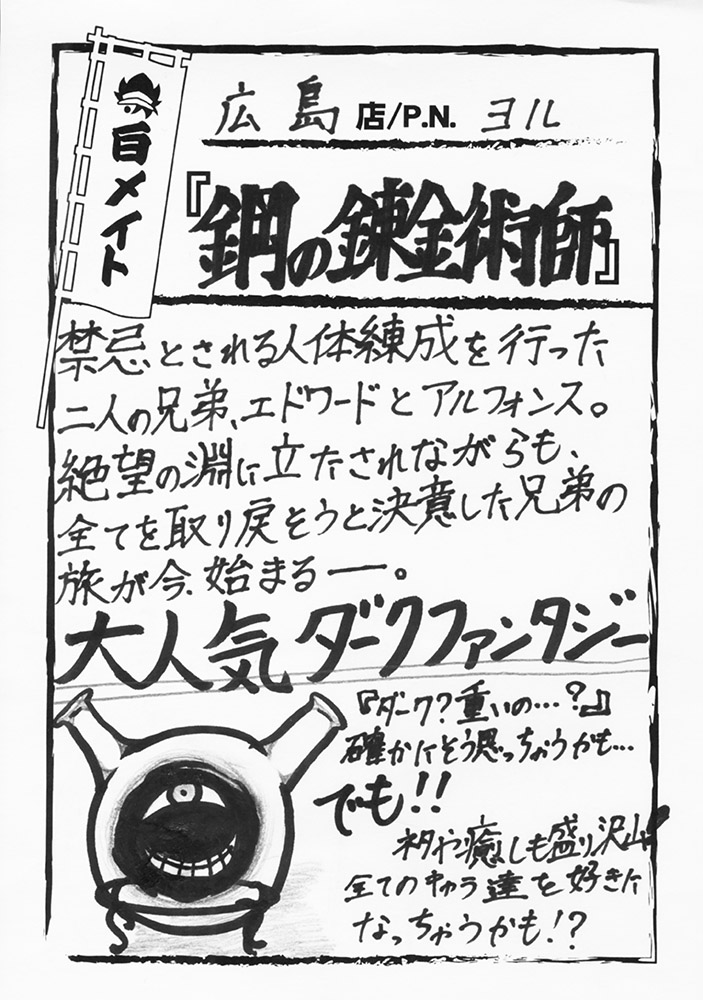 広島 店/P.N. ヨル
百メイト
『鋼の錬金術師』
禁忌とされる人体練成を行った
二人の兄弟、エドワードとアルフォンス。
絶望の淵に立たされながらも、
全てを取り戻そうと決意した兄弟の
旅が今、始まる――。
大人気ダークファンタジー
『ダーク?重いの…?』
確かにそう思っちゃうかも…
でも!!
ネタや癒しも盛り沢山!
全てのキャラ達を好きに
なっちゃうかも!?